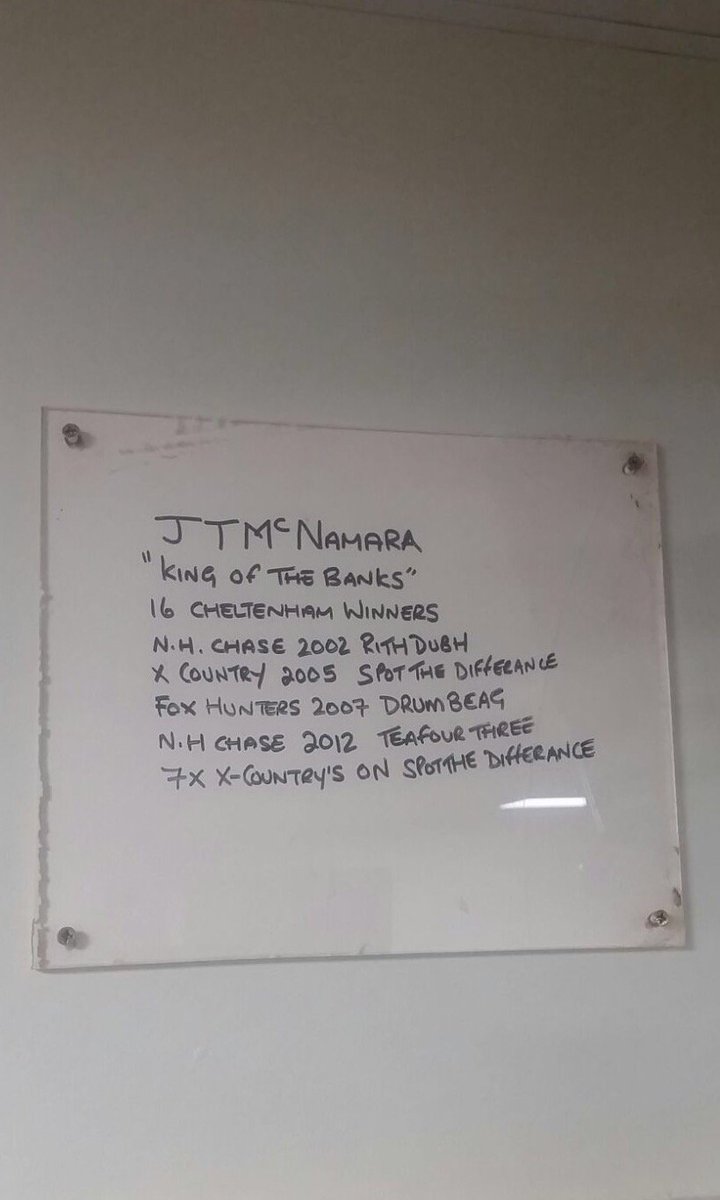 J T McNAMARA
"KING OF THE BANKS"
16 CHELTENHAM WINNERS
N.H. CHASE 2002 RITH DUBH
X COUNTRY 2005 SPOT THE DIFFERANCE
FOX HUNTERS 2007 DRUMBEAG
N.H CHASE 2012 TEAFOUR THREE
7X X-COUNTRY'S ON SPOT THE DIFFERANCE